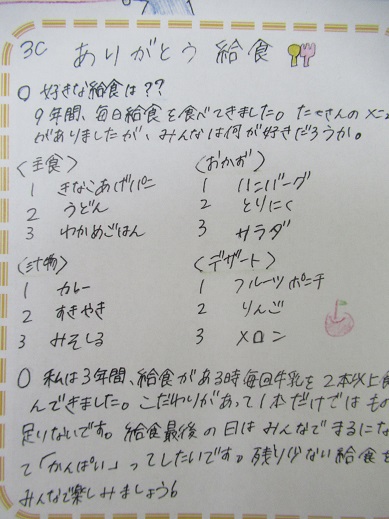 3C ありがとう 給食
○ 好きな給食は??
9年間、毎日給食を食べてきました。たくさんのメニ
がありましたが、みんなは何が好きだろうか。
〈主食〉 〈おかず〉
1 きなこあげパン 1 ハンバーグ
2 うどん 2 とりにく
3 わかめごはん 3 サラダ
〈汁物〉 〈デザート〉
1 カレー 1 フルーツポンチ
2 すきやき 2 りんご
3 みそしる 3 メロン
○ 私は3年間、給食がある時毎回牛乳を2本以上飲
んできました。こだわりがあって1本だけではもの
足りないです。給食最後の日はみんなでまるにな
て「かんぱい」ってしたいです。残り少ない給食を
みんなで楽しみましょう